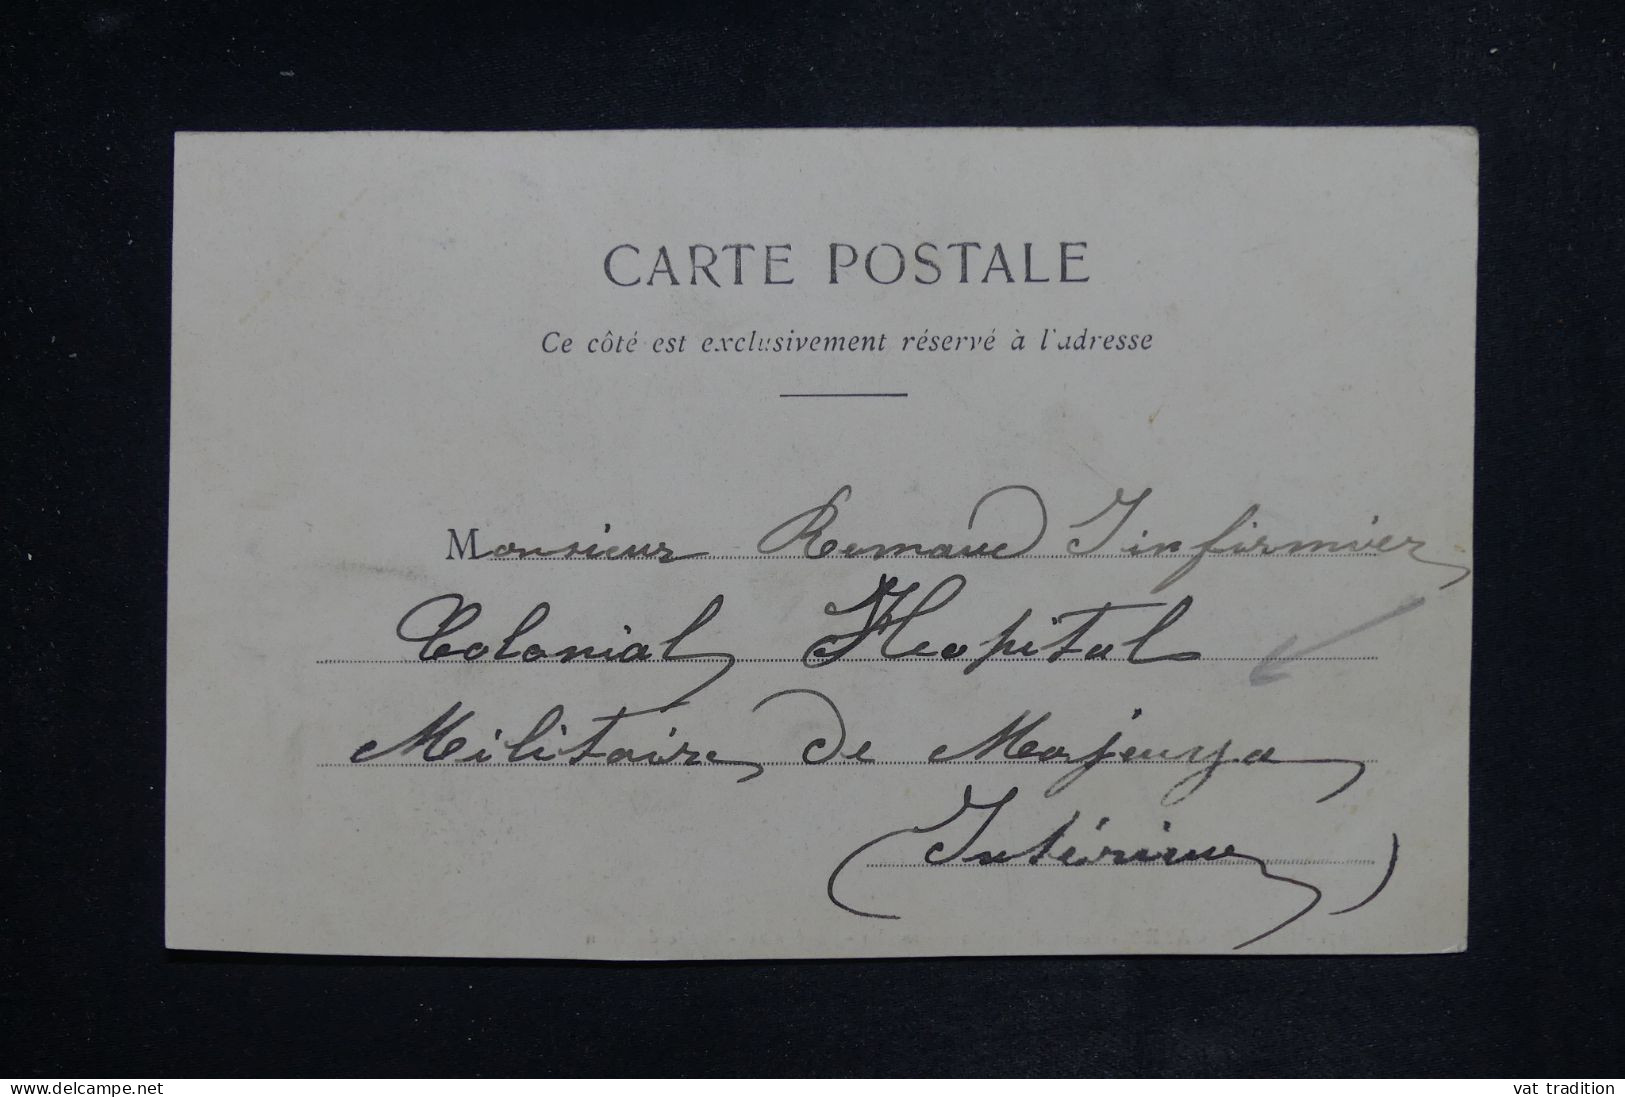 CARTE POSTALE
Ce côté est exclusivement réservé à l'adresse
Monsieur Remaud Infirmier
Colonial Hopital
Militaire de Majunga
(Intérieur)
www.delcampe.net
vat tradition